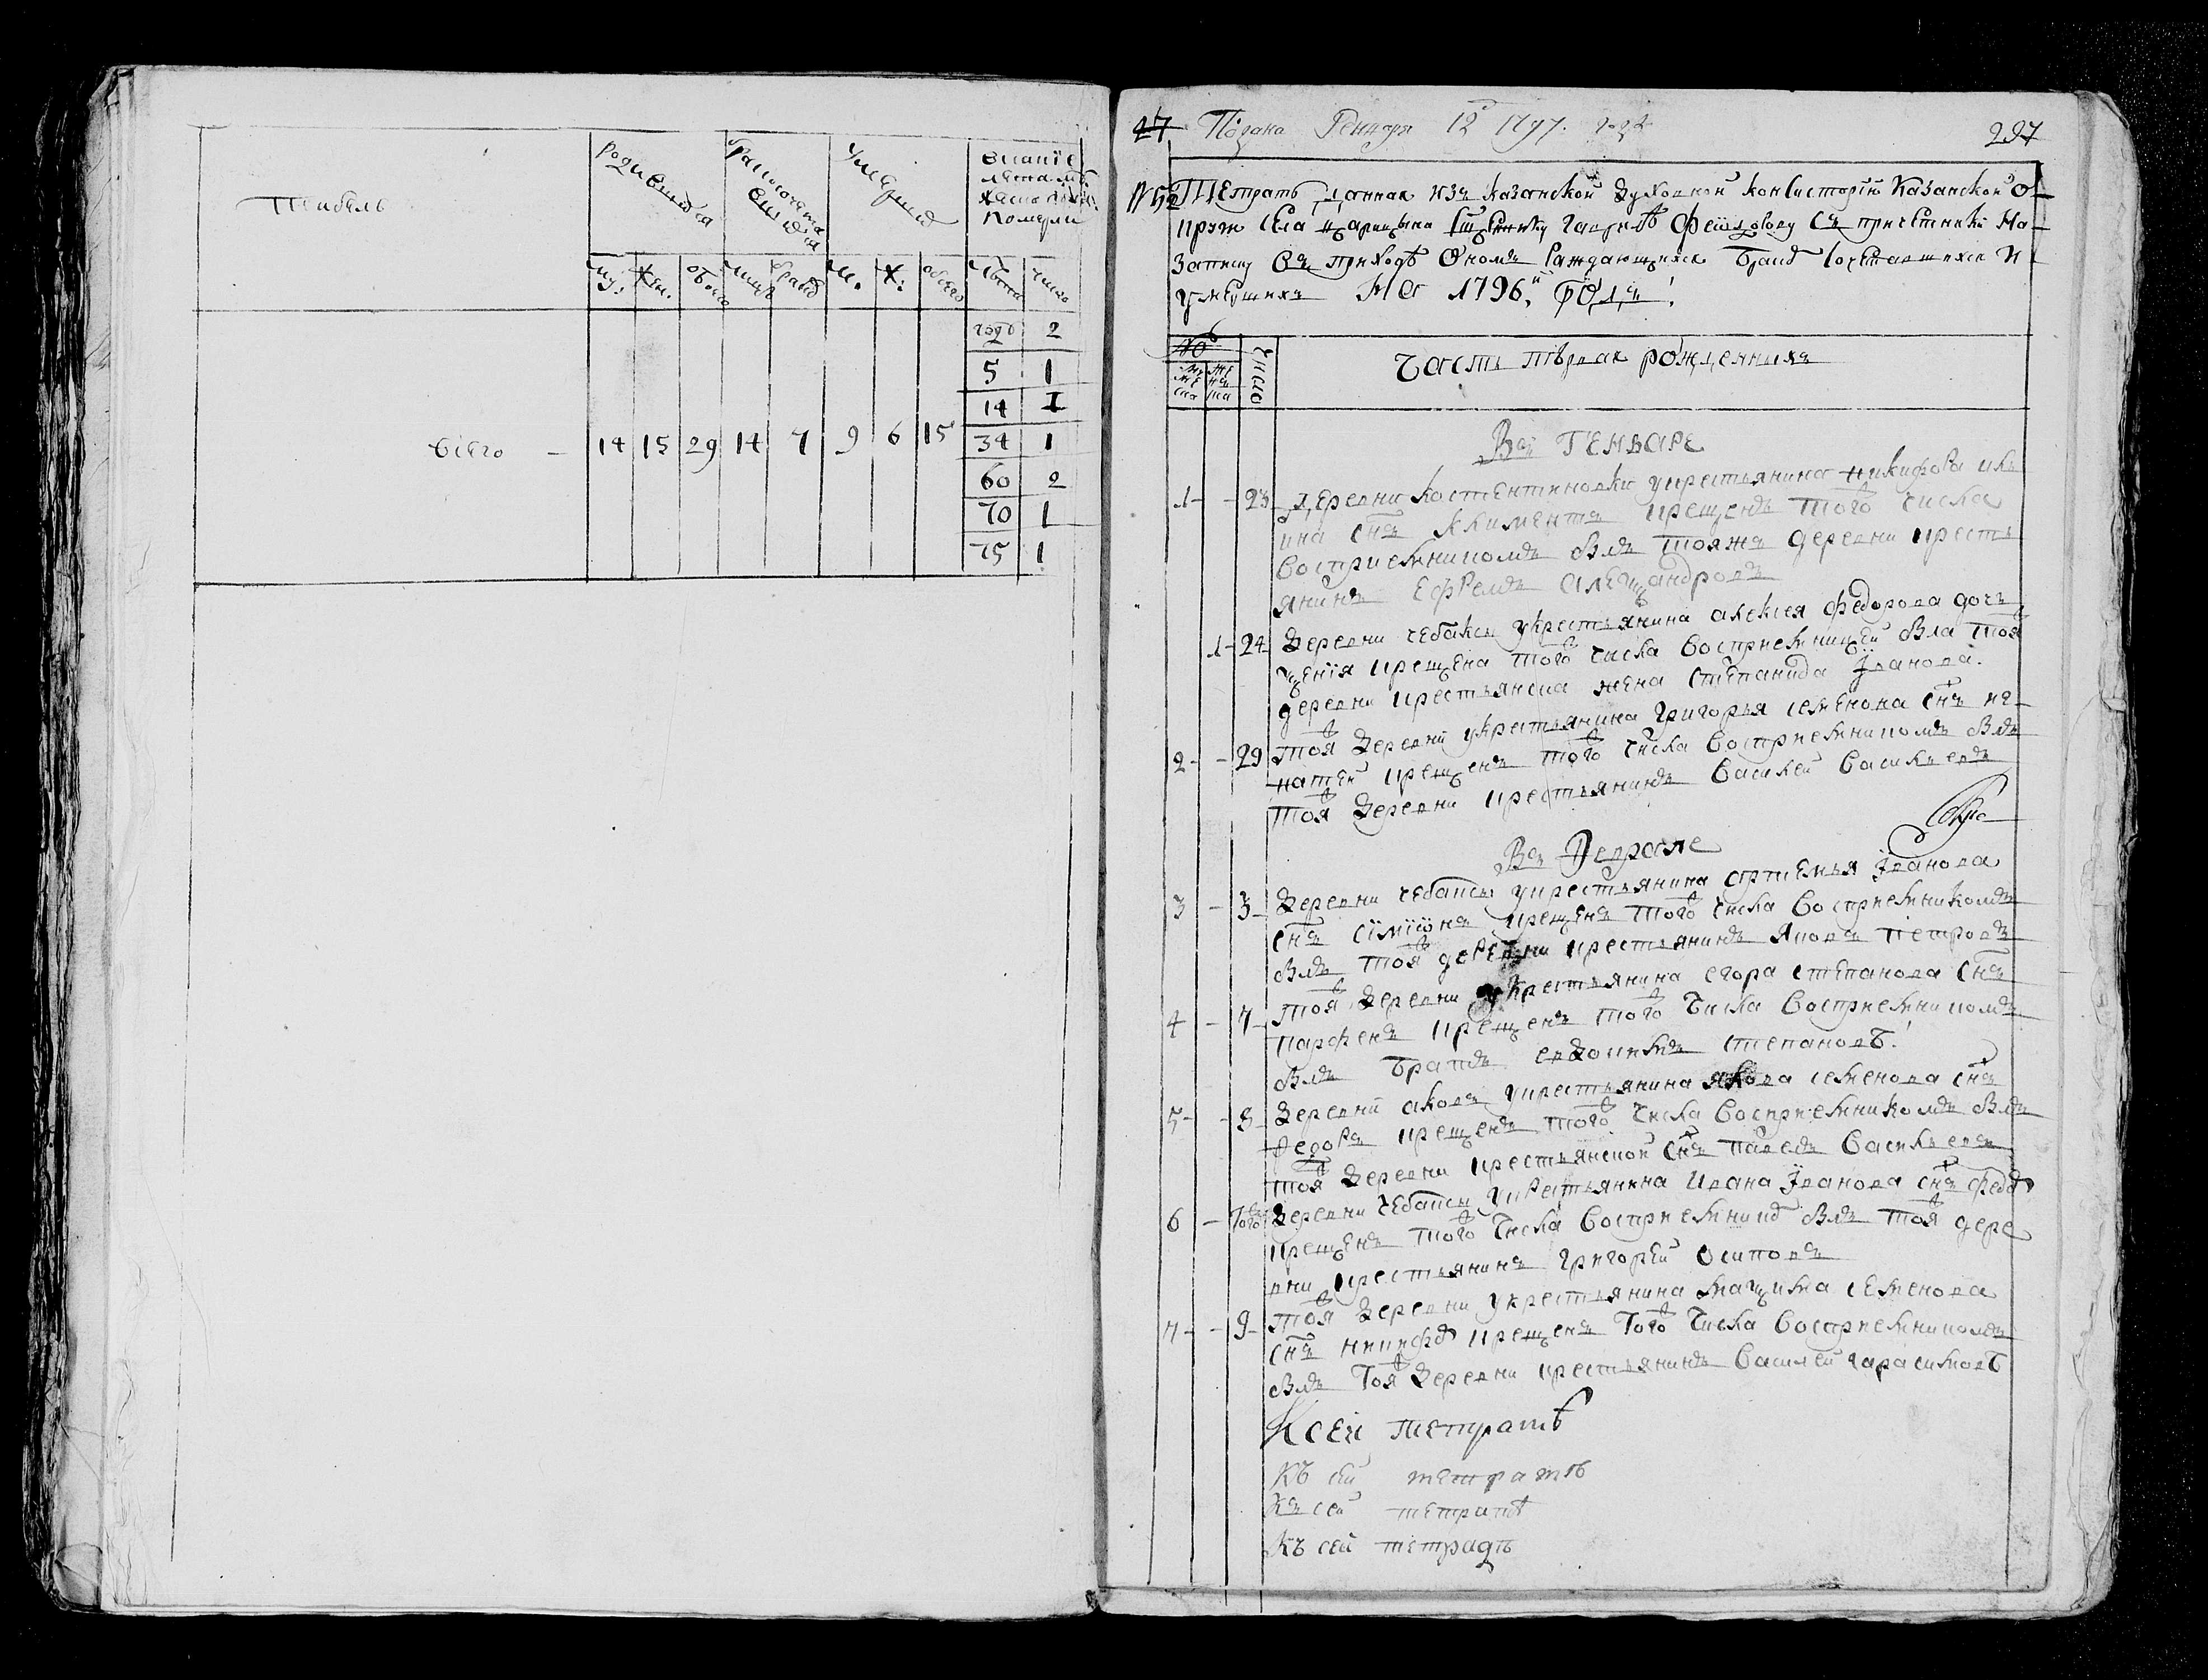 Табель
родившихся
умершие
померли
муж:
жен.
обоего
м.
ж:
обоего
лета
число
2
5 1
14 1
34 1
60 2
70 1
75 1
всего — 14 15 29 14 7 9 6 15
27 Подана Генваря 12 1797. года
297
№ 52 Тетрать данная изъ казанской духовной консисторіи казанской о
круги села царицына священнику с причетники на
записку въ приходѣ ономъ раждающихся брако сочетавшихся и
умершихъ на 1796й годъ
число
Часть первая рожденныхъ
Въ Генваре
1 - - 23 деревни костентиновки у крестьянина никифора
ина снъ климентъ крещенъ того числа
восприемникомъ былъ тояжъ деревни кресть
янинъ ефремъ алеѯандровъ
1 - 24 деревни чебаксы у крестьянина алексея федорова дочь
ѯения крещена того числа восприемницей была тоя
деревни крестьянска жена степанида іванова.
2 - - 29 тоя деревни у крестьянина григорья семенова снъ иг
натей крещенъ того числа восприемникомъ былъ
тоя деревни крестьянинъ василей васильевъ
Въ Феврале
3 - 3 деревни чебаксы у крестьянина артемья іванова
снъ сімїонъ крещенъ того числа восприемникомъ
былъ тоя деревни крестьянинъ яковъ петровъ
4 - 7 тоя деревни у крестьянина егора степанова снъ
парфенъ крещенъ того числа восприемникомъ
былъ братъ евдокимъ степановъ
5 - - 8 деревни у крестьянина якова семенова снъ
федоръ крещенъ того числа восприемникомъ былъ
тоя деревни крестьянской снъ павелъ васильевъ
6 - того деревни чебаксы у крестьянина ивана іванова снъ федо
крещенъ того числа восприемнико былъ тоя дере
вни крестьянинъ григорей осиповъ
7 - - 9 тоя деревни у крестьянина маѯима семенова
снъ никифо крещенъ того числа восприемникомъ
былъ тоя деревни крестьянинъ василей гарасимовъ
К сей тетратѣ
Къ сей тетратѣ
Къ сей тетратѣ
Къ сей тетрадѣ